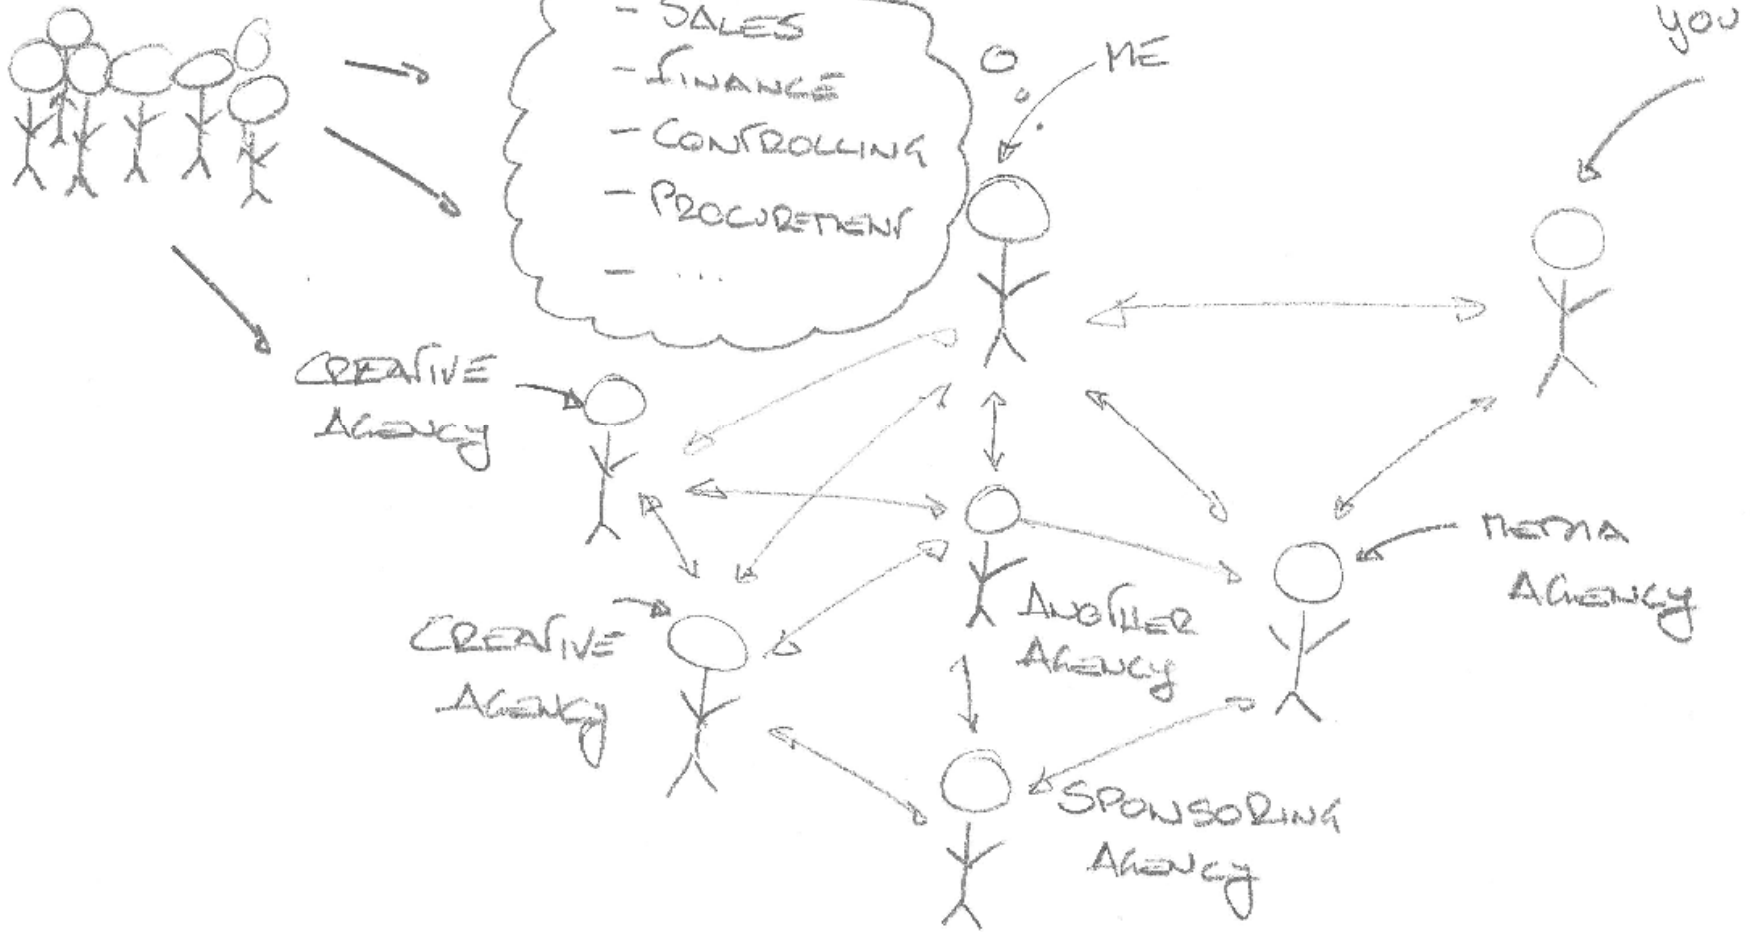 - SALES
- FINANCE
- CONTROLLING
- PROCUREMENT
- ...
ME
YOU
CREATIVE
AGENCY
CREATIVE
AGENCY
ANOTHER
AGENCY
MEDIA
AGENCY
SPONSORING
AGENCY